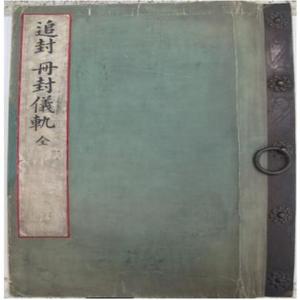 追封冊封儀軌 全